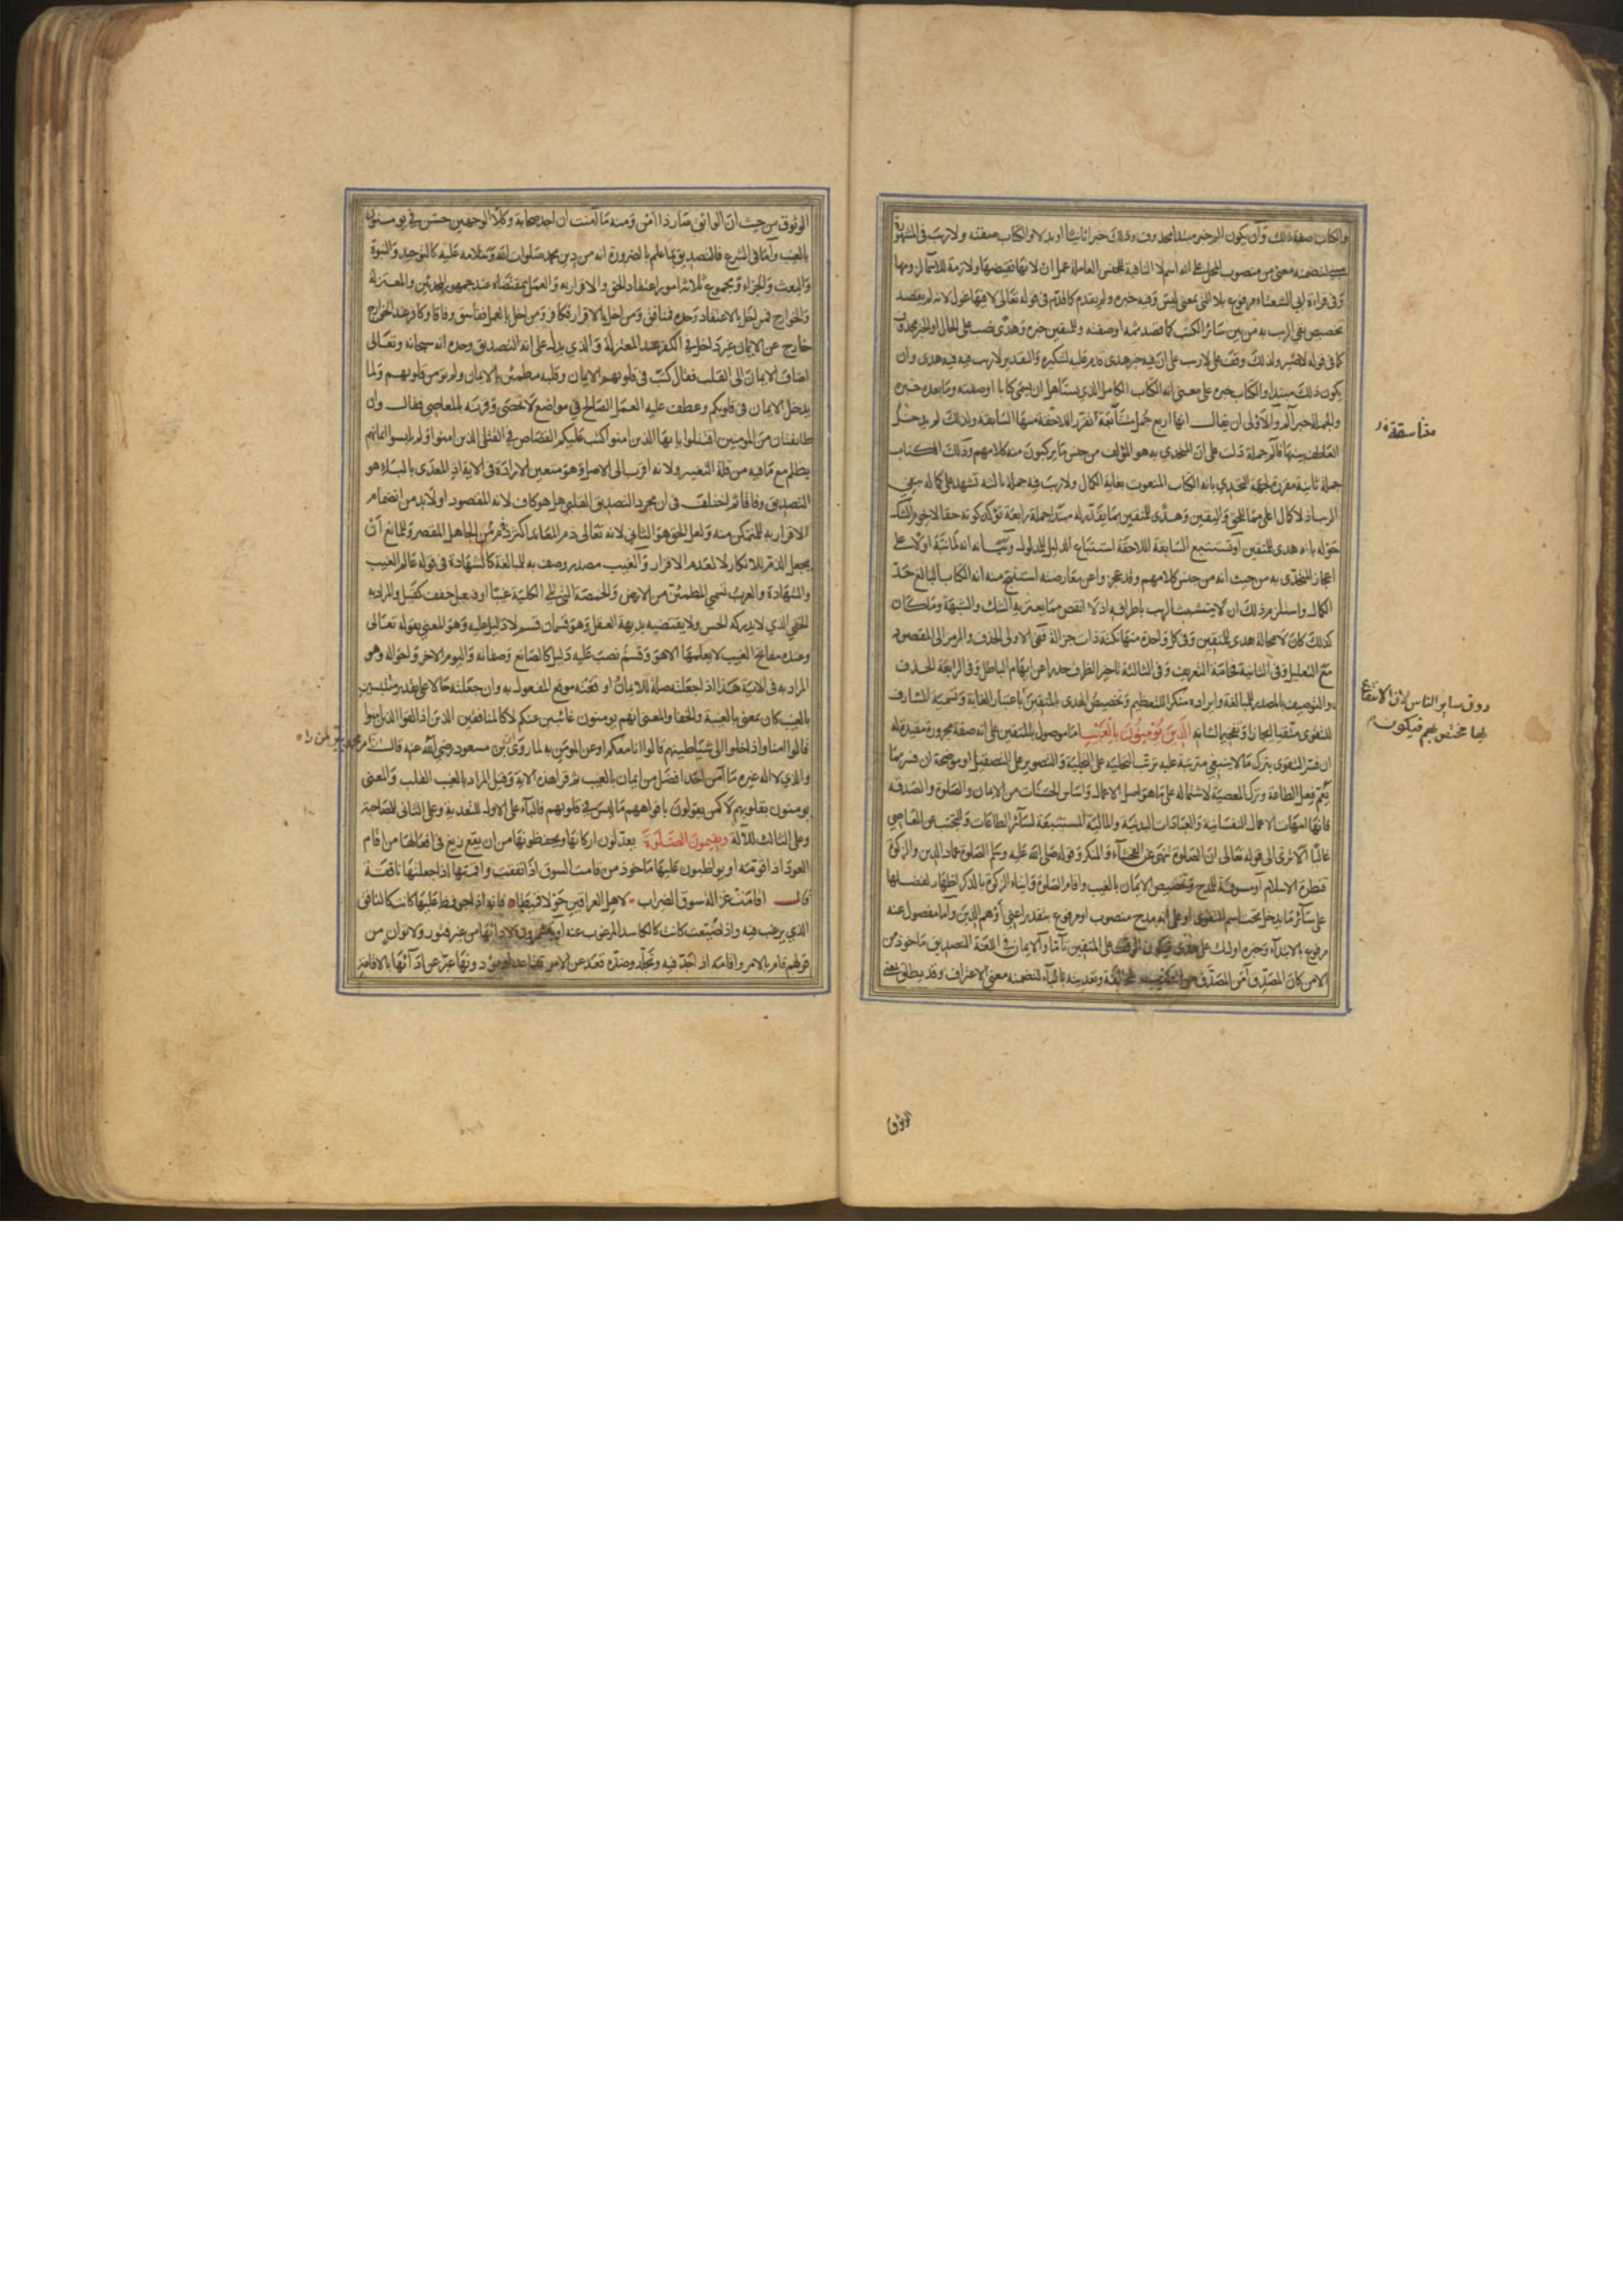 والكتاب صفة ذلك وان يكون الم خبر مبتدأ محذوف وذلك خبرا ثانيا او بدلا والكتاب صفته ولا ريب في المشهورة
لتضمنه معنى من منصوب المحل على انه اسم لا النافية للجنس العاملة عمل ان لانها نقيضها ولازمة للاسماء لزومها
وفي قراءة ابي الشعثاء مرفوع بلا التي بمعنى ليس وفيه خبره ولم يقدم كما قدم في قوله تعالى لا فيها غول لانه لم يقصد
تخصيص نفي الريب به من بين سائر الكتب كما قصد ثمه او صفته وللمتقين خبره وهدى نصب على الحال او الخبر محذوف
كما في قوله لا ضير ولذلك وقف على لا ريب على ان فيه خبر هدى قدم عليه لتنكيره والتقدير لا ريب فيه فيه هدى وان
يكون ذلك مبتدا والكتاب خبره على معنى انه الكتاب الكامل الذي يستاهل ان يسمى كتابا او صفته وما بعده خبره
والجملة خبر الم والاولى ان يقال انها اربع جمل متناسقة تقرر اللاحقة منها السابقة ولذلك لم يدخل
العاطف بينها فالم جملة دلت على ان المتحدي به هو المؤلف من جنس ما يركبون منه كلامهم وذلك الكتاب
جملة ثانية مقررة لجهة التحدي بانه الكتاب المنعوت بغاية الكمال ولا ريب فيه جملة ثالثة تشهد على كماله بنفي
الريب اذ لا كمال اعلى مما للحق واليقين وهدى للمتقين بما يقدر له مبتدا جملة رابعة تؤكد كونه حقا لا يحوم الشك
حوله بانه هدى للمتقين او تستتبع السابقة اللاحقة استتباع الدليل للمدلول وبيانه انه لما نبه اولا على
اعجاز المتحدى به من حيث انه من جنس كلامهم وقد عجزوا عن معارضته استنتج منه انه الكتاب البالغ حد
الكمال واستلزم ذلك ان لا يتشبث الريب باطرافه اذ لا انقص مما يعتريه الشك والشبهة وما كان
كذلك كان لا محالة هدى للمتقين وفي كل واحدة منها نكتة ذات جزالة ففي الاولى الحذف والرمز الى المقصود
مع التعليل وفي الثانية فخامة التعريف وفي الثالثة تاخير الظرف حذرا عن ابهام الباطل وفي الرابعة الحذف
والتوصيف بالمصدر للمبالغة وايراده منكرا للتعظيم وتخصيص الهدى بالمتقين باعتبار الغاية وتسمية المشارف
للتقوى متقيا ايجازا وتفخيما لشانه الذين يؤمنون بالغيب اما موصول بالمتقين على انه صفة مجرورة مقيدة له
ان فسر التقوى بترك ما لا ينبغي مترتبة عليه ترتب التحلية على التخلية والتصوير على التصقيل او موضحة ان فسر بما
يعم فعل الطاعة وترك المعصية لاشتماله على ما هو اصل الاعمال واساس الحسنات من الايمان والصلوة والصدقة
فانها امهات الاعمال النفسانية والعبادات البدنية والمالية المستتبعة لسائر الطاعات والتجنب عن المعاصي
غالبا الا ترى الى قوله تعالى ان الصلوة تنهى عن الفحشاء والمنكر وقوله صلى الله عليه وسلم الصلوة عماد الدين والزكوة
قنطرة الاسلام او مسوقة للمدح وتخصيص الايمان بالغيب واقام الصلوة وايتاء الزكوة بالذكر اظهار لفضلها
على سائر ما يدخل تحت اسم التقوى او على انه مدح منصوب او مرفوع بتقدير اعني او هم الذين واما مفصول عنه
مرفوع بالابتداء وخبره اولئك على هدى فيكون الوقف على المتقين تاما والايمان في اللغة التصديق ماخوذ من
الامن كان المصدق آمن المصدق من التكذيب والمخالفة وتعديته بالباء لتضمنه معنى الاعتراف وقد يطلق بمعنى
متناسقة
دون سائر الناس لان الانتفاع
بها مختص بهم فيكون
الوثوق
الوثوق من حيث ان الواثق صار ذا امن ومنه ما آمنت ان اجد صحابة وكلا الوجهين حسن في يؤمنون
بالغيب واما في الشرع فالتصديق بما علم بالضرورة انه من دين محمد صلوات الله وسلامه عليه كالتوحيد والنبوة
والبعث والجزاء ومجموع ثلاثة امور اعتقاد الحق والاقرار به والعمل بمقتضاه عند جمهور المحدثين والمعتزلة
والخوارج فمن اخل بالاعتقاد وحده فمنافق ومن اخل بالاقرار فكافر ومن اخل بالعمل ففاسق وفاقا وكافر عند الخوارج
خارج عن الايمان غير داخل في الكفر عند المعتزلة والذي يدل على انه التصديق وحده انه سبحانه وتعالى
اضاف الايمان الى القلب فقال كتب في قلوبهم الايمان وقلبه مطمئن بالايمان ولم تؤمن قلوبهم ولما
يدخل الايمان في قلوبكم وعطف عليه العمل الصالح في مواضع لا تحصى وقرنه بالمعاصي فقال وان
طايفتان من المومنين اقتتلوا يا يها الذين امنوا كتب عليكم القصاص في القتلى الذين امنوا ولم يلبسوا ايمانهم
بظلم مع ما فيه من قلة التغيير ولانه اقرب الى الاصل وهو متعين الارادة في الاية اذ المعدى بالباء هو
التصديق وفاقا ثم اختلف في ان مجرد التصديق القلبي هل هو كاف لانه المقصود او لابد من انضمام
الاقرار به للمتمكن منه ولعل الحق هو الثاني لانه تعالى ذم المعاند اكثر من ذم الجاهل المقصر وللمانع ان
يجعل الذم للانكار لا لعدم الاقرار والغيب مصدر وصف به للمبالغة كالشهادة في قوله عالم الغيب
والشهادة والعرب تسمي المطمئن من الارض والخمصة التي تلي الكلية غيبا او فيعل خفف كقيل والمراد به
الخفي الذي لا يدركه الحس ولا يقتضيه بديهة العقل وهو قسمان قسم لا دليل عليه وهو المعني بقوله تعالى
وعنده مفاتح الغيب لا يعلمها الا هو وقسم نصب عليه دليل كالصانع وصفاته واليوم الاخر واحواله وهو
المراد به في الاية هذا اذا جعلته صلة للايمان او قعته موقع المفعول به وان جعلته حالا على تقدير متلبسين
بالغيب كان بمعنى بالغيبة والخفا والمعنى انهم يومنون غائبين عنكم لا كالمنافقين الذين اذا لقوا الذين امنوا
قالوا امنا واذا خلوا الى شياطينهم قالوا انا معكم او عن المؤمن به لما روى ابن مسعود رضي الله عنه قال
والذي لا اله غيره ما آمن احد افضل من ايمان بالغيب ثم قرا هذه الاية وقيل المراد بالغيب القلب والمعنى
يومنون بقلوبهم لا كمن يقولون بافواههم ما ليس في قلوبهم فالباء على الاول للتعدية وعلى الثاني للمصاحبة
وعلى الثالث للآلة ويقيمون الصلوة يعدلون اركانها ويحفظونها من ان يقع زيغ في افعالها من اقام
العود اذا قومته او يواظبون عليها ماخوذ من قامت السوق اذا نفقت واقمتها اذا جعلتها نافقة
قال اقامت غزالة سوق الضراب لاهل العراقين حولا قميطا فانه اذا حوفظ عليها كانت كالنافق
الذي يرغب فيه واذا ضيعت كانت كالكاسد المرغوب عنه او يتشمرون لادائها من غير فتور ولا توان من
قولهم قام بالامر واقامه اذا جد فيه وتجلد وضده قعد عن الامر تقاعد او يؤدونها عبر عن ادائها بالاقامة